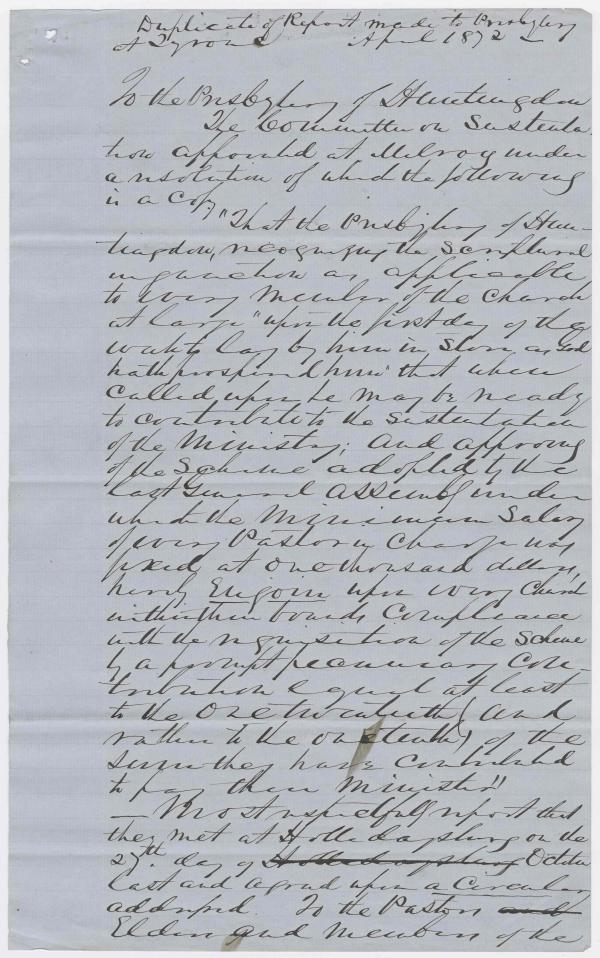 Duplicate of Report made to Presbytery
at Tyrone April 1872 —
To the Presbytery of Huntingdon
The Committee on Sustenta-
tion appointed at Milroy under
a resolution of which the following
is a Copy
"That the Presbytery of Hun-
tingdon, recognizing the Scriptural
injunction as applicable
to every Member of the Church
at large "upon the first day of the
week to lay by him in Store as God
hath prospered him" that when
Called upon he may be ready
to contribute to the Sustentation
of the Ministry; and approving
of the Scheme adopted by the
last General Assembly under
which the Minimum Salary
of every Pastor in Charge was
fixed at One thousand dollars,
hereby Enjoin upon every Church
within their bounds Compliance
with the requisition of the Scheme
by a prompt pecuniary Con-
tribution equal at least
to the One twentieth (and
rather to the one tenth) of the
sum they have Contributed
to pay their Minister"
— Most respectfully report that
they met at Hollidaysburg on the
27th day of Hollidaysburg October
last and agreed upon a Circular
addressed To the Pastors and
Elders and Members of the